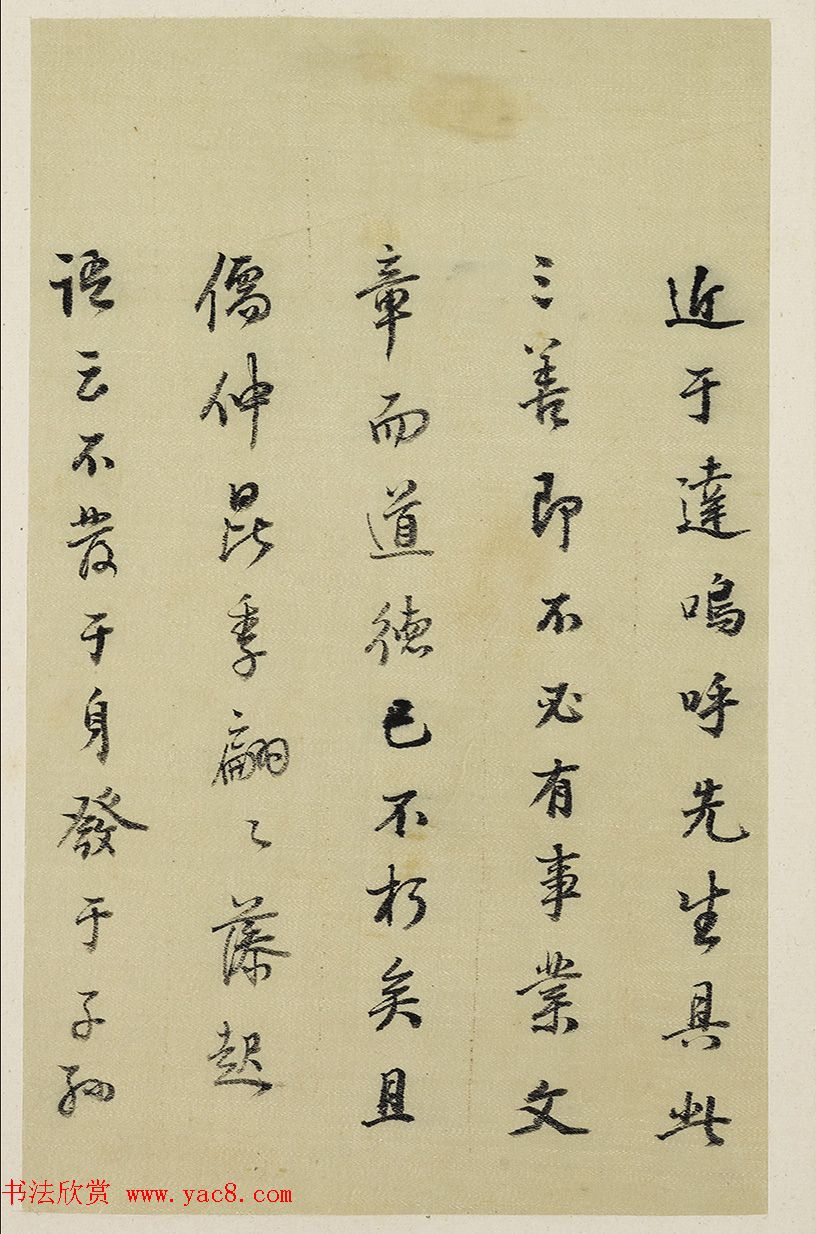 近于達嗚呼先生具此
三善即不必有事業文
章而道德已不朽矣且
儒仲昆季翩〻藤起
語云不發于身發于子孫
书法欣赏 www.yac8.com